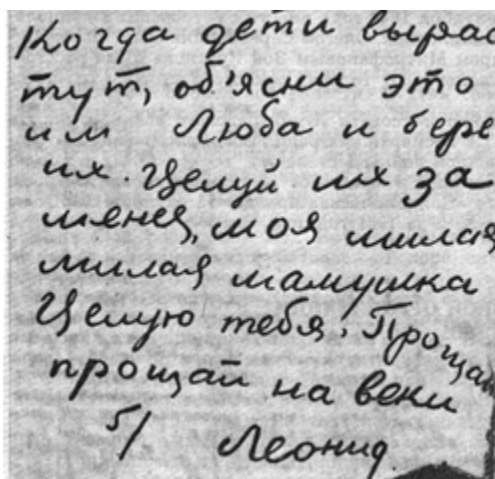 Когда дети вырас
тут, об'ясни это
им Люба и бере
их. Целуй их за
меня, моя милая
милая мамушка
Целую тебя. Проща
прощай на веки
5/ Леонид.